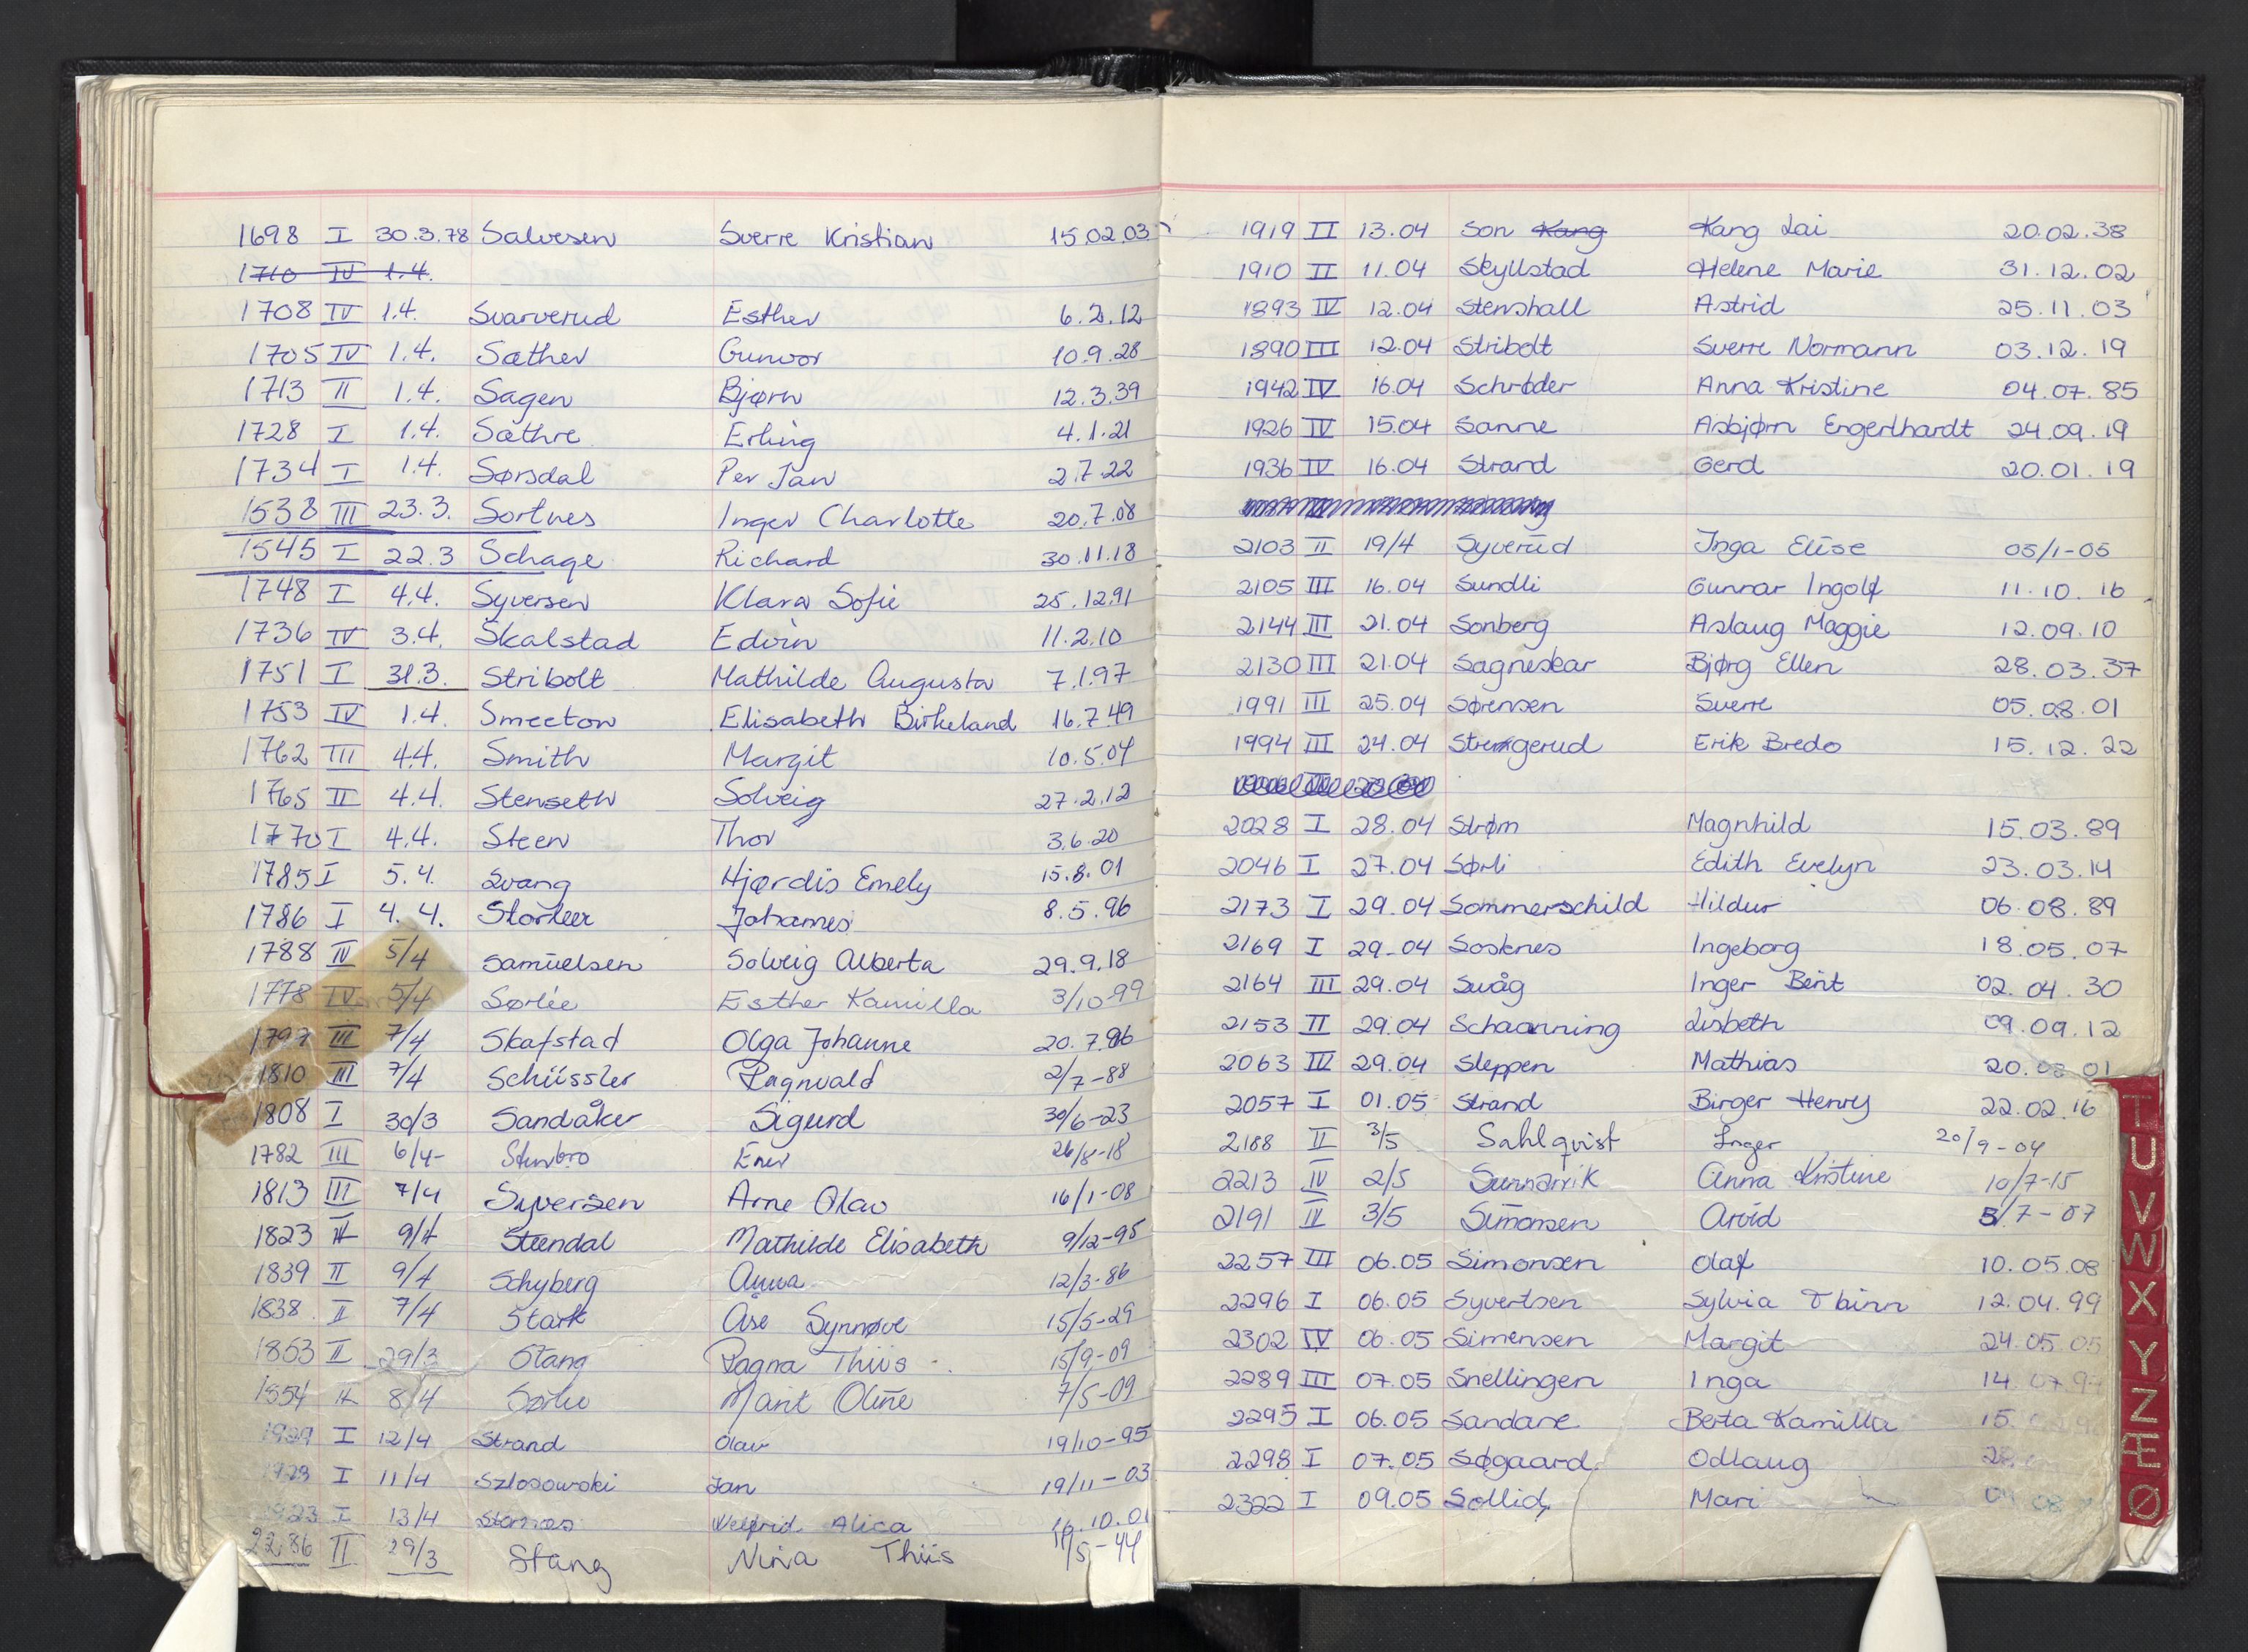 1698 I 30.3.78 Salvesen Sverre Kristian 15.02.03
1710 IV 1.4.
1708 IV 1.4. Svarverud Esther 6.2.12
1705 IV 1.4. Sæther Gunvor 10.9.28
1713 II 1.4. Sagen Bjørn 12.3.39
1728 I 1.4. Sæthre Erling 4.1.21
1734 I 1.4. Sørsdal Per Jan 2.7.22
1538 III 23.3. Sortnes Inger Charlotte 20.7.08
1545 I 22.3 Schage Richard 30.11.18
1748 I 4.4. Syversen Klara Sofie 25.12.91
1736 IV 3.4. Skalstad Edvin 11.2.10
1751 I 31.3. Stribolt Mathilde Augusta 7.1.97
1753 IV 1.4. Smeeton Elisabeth Birkeland 16.7.49
1762 III 4.4. Smith Margit 10.5.04
1765 II 4.4. Stenseth Solveig 27.2.12
1770 I 4.4. Steen Thor 3.6.20
1785 I 5.4. Svang Hjørdis Emely 15.8.01
1786 I 4.4. Storleer Johannes 8.5.96
1788 IV 5/4 Samuelsen Solveig Alberta 29.9.18
1778 IV 5/4 Sørlie Esther Kamilla 3/10-99
1797 III 7/4 Skafstad Olga Johanne 20.7.86
1810 III 7/4 Schüssler Ragnvald 2/7-88
1808 I 30/3 Sandåker Sigurd 30/6-23
1782 III 6/4- Stenbro 26/8-18
1813 III 7/4 Syversen Arne Olav 16/1-08
1823 II 9/4 Steendal Mathilde Elisabeth 9/12-95
1839 II 9/4 Schyberg Anna 12/3-86
1838 II 7/4 Stark Åse Synnøve 15/5-29
1853 II 29/3 Stang Ragna Thiis 15/9-09
1854 II 8/4 Sørlie Marit Oline 7/5-09
1929 I 12/4 Strand Olav 19/10-95
1928 I 11/4 Szlosowski Jan 19/11-03
1923 I 13/4 Alica 16.10.01
2286 II 29/3 Stang Nina Thiis 11/5-44
1919 II 13.04 Son Kang Kang Lai 20.02.38
1910 II 11.04 Skyllstad Helene Marie 31.12.02
1893 IV 12.04 Stenshall Astrid 25.11.03
1890 III 12.04 Stribolt Sverre Normann 03.12.19
1942 IV 16.04 Schrøder Anna Kristine 04.07.85
1926 IV 15.04 Sanne Asbjørn Engerlhardt 24.09.19
1936 IV 16.04 Strand Gerd 20.01.19
2103 II 19/4 Syverud Inga Elise 05/1-05
2105 III 16.04 Sundli Gunnar Ingolf 11.10.16
2144 III 21.04 Sonberg Aslaug Maggie 12.09.10
2130 III 21.04 Sagneskar Bjørg Ellen 28.03.37
1991 III 25.04 Sørensen Sverre 05.08.01
1994 III 24.04 Strengerud Erik Bredo 15.12.22
2028 I 28.04 Strøm Magnhild 15.03.89
2046 I 27.04 Sørli Edith Evelyn 23.03.14
2173 I 29.04 Sommerschild Hildur 06.08.89
2169 I 29.04 Sosknes Ingeborg 18.05.07
2164 III 29.04 Svåg Inger Berit 02.04.30
2153 II 29.04 Schaanning Lisbeth 09.09.12
2063 IV 29.04 Sleppen Mathias 20.02.01
2057 I 01.05 Strand Birger Henry 22.02.16
2188 II 3/5 Sahlqvist Inger 20/9-04
2213 IV 2/5 Sunnarvik Anna Kristine 10/7-15
2191 IV 3/5 Simonsen Arvid 5/7-07
2257 III 06.05 Simonsen Olaf 10.05.08
2296 I 06.05 Syvertsen Sylvia 12.04.99
2302 IV 06.05 Simensen Margit 24.05.05
2289 III 07.05 Snellingen Inga 14.07.97
2295 I 06.05 Sandane Berta Kamilla 15.
2298 I 07.05 Søgaard Odlaug 28.
2322 I 09.05 Sollid Mari 04.08
T
U
V
W
X
Y
Z
Æ
Ø